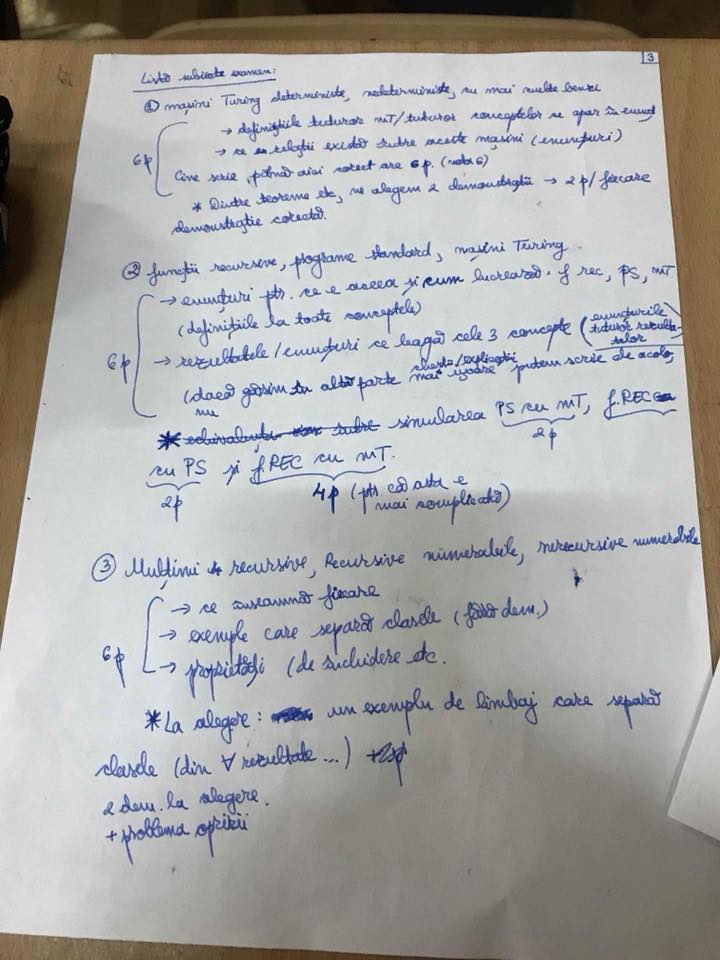 3
Listă subiecte examen:
① mașini Turing deterministe, nedeterministe, cu mai multe benzi
→ definițiile tuturor MT/tuturor conceptelor ce apar în enunț
→ ce relații există între aceste mașini (enunțuri)
6p
Cine scrie până aici corect are 6p. (nota 6)
* Dintre teoreme etc, ne alegem 2 demonstrații → 2p/fiecare
demonstrație corectă.
② funcții recursive, programe standard, mașini Turing
→ enunțuri ptr. ce e aceea și cum lucrează f rec, PS, MT
(definițiile la toate conceptele)
6p
→ rezultatele/enunțuri ce leagă cele 3 concepte (enunțurile
tuturor rezultatelor)
chestii/explicații
(dacă găsim în altă parte mai ușoare putem scrie de acolo)
nu
* simularea PS cu MT, f.REC
2p
cu PS și f.REC cu MT.
2p 4p (ptr că asta e
mai complicată)
③ Mulțimi recursive, Recursive numerabile, nerecursive numerabile
→ ce înseamnă fiecare
→ exemple care separă clasele (fără dem.)
6p
→ proprietăți (de închidere etc.
* La alegere: un exemplu de limbaj care separă
clasele (din ∀ rezultate ...) +2p
2 dem. la alegere.
+ problema opririi